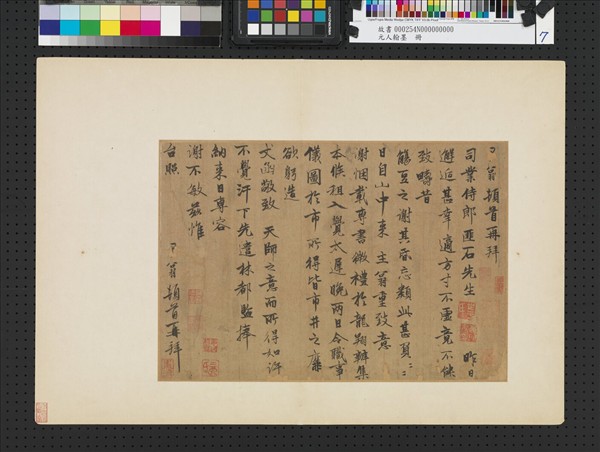 故書 000254N000000000
元人翰墨 冊
7
翁頓首再拜
司業侍郎匪石先生 昨日
邂逅甚幸適方寸不靈竟不能
致疇昔
觴豆之謝其昏忘類此甚負〻
日自山中來 主翁重致意
謝個載專書微禮於龍翔辦集
本倦迓入覺大遲晚兩日令職事
儀圖於市所得皆市井之
欲躬造
文函敬致 天師之意而所得如許
不覺汗下先遣林都監捧
納來日專容
謝不敏玆惟
台照 翁頓首再拜